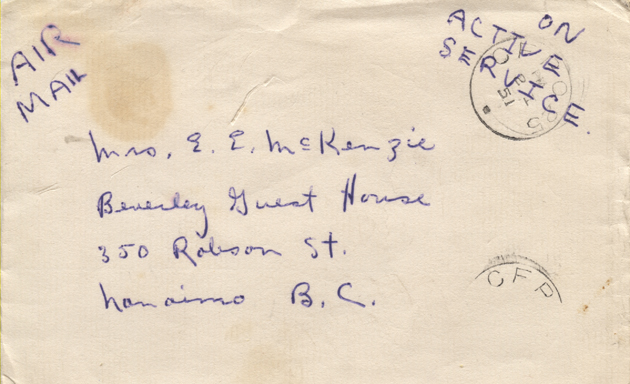 AIR
MAIL
ON
ACTIVE
SERVICE.
51
Mrs. E. E. McKenzie
Beverley Guest House
350 Robson St.
Nanaimo B. C.
CFP